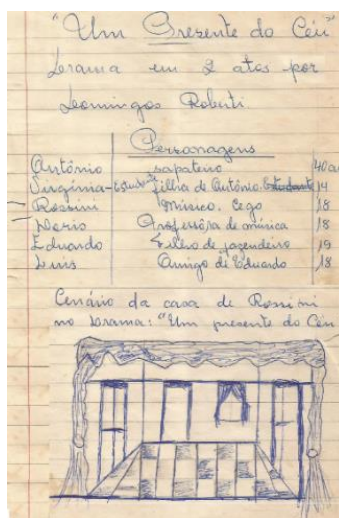 "Um Presente do Céu"
Drama em 2 atos por
Domingos Roberti
Personagens
Antônio sapateiro 40
Virgínia - filha de Antônio. Estudante 14
Rossini Músico. Cego 18
Professôra de música 18
Eduardo Filho de fazendeiro 19
Luis Amigo de Eduardo 18
Cenário da casa de Rossini
no Drama: "Um presente do Céu